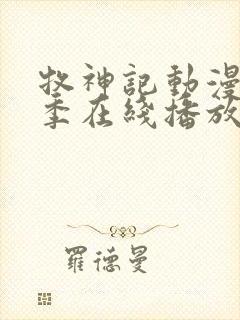 牧神記動漫
季在綫播放
羅德曼